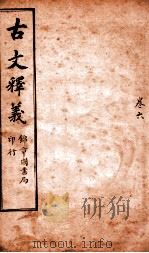 卷六
古文釋義
錦章圖書局
印行